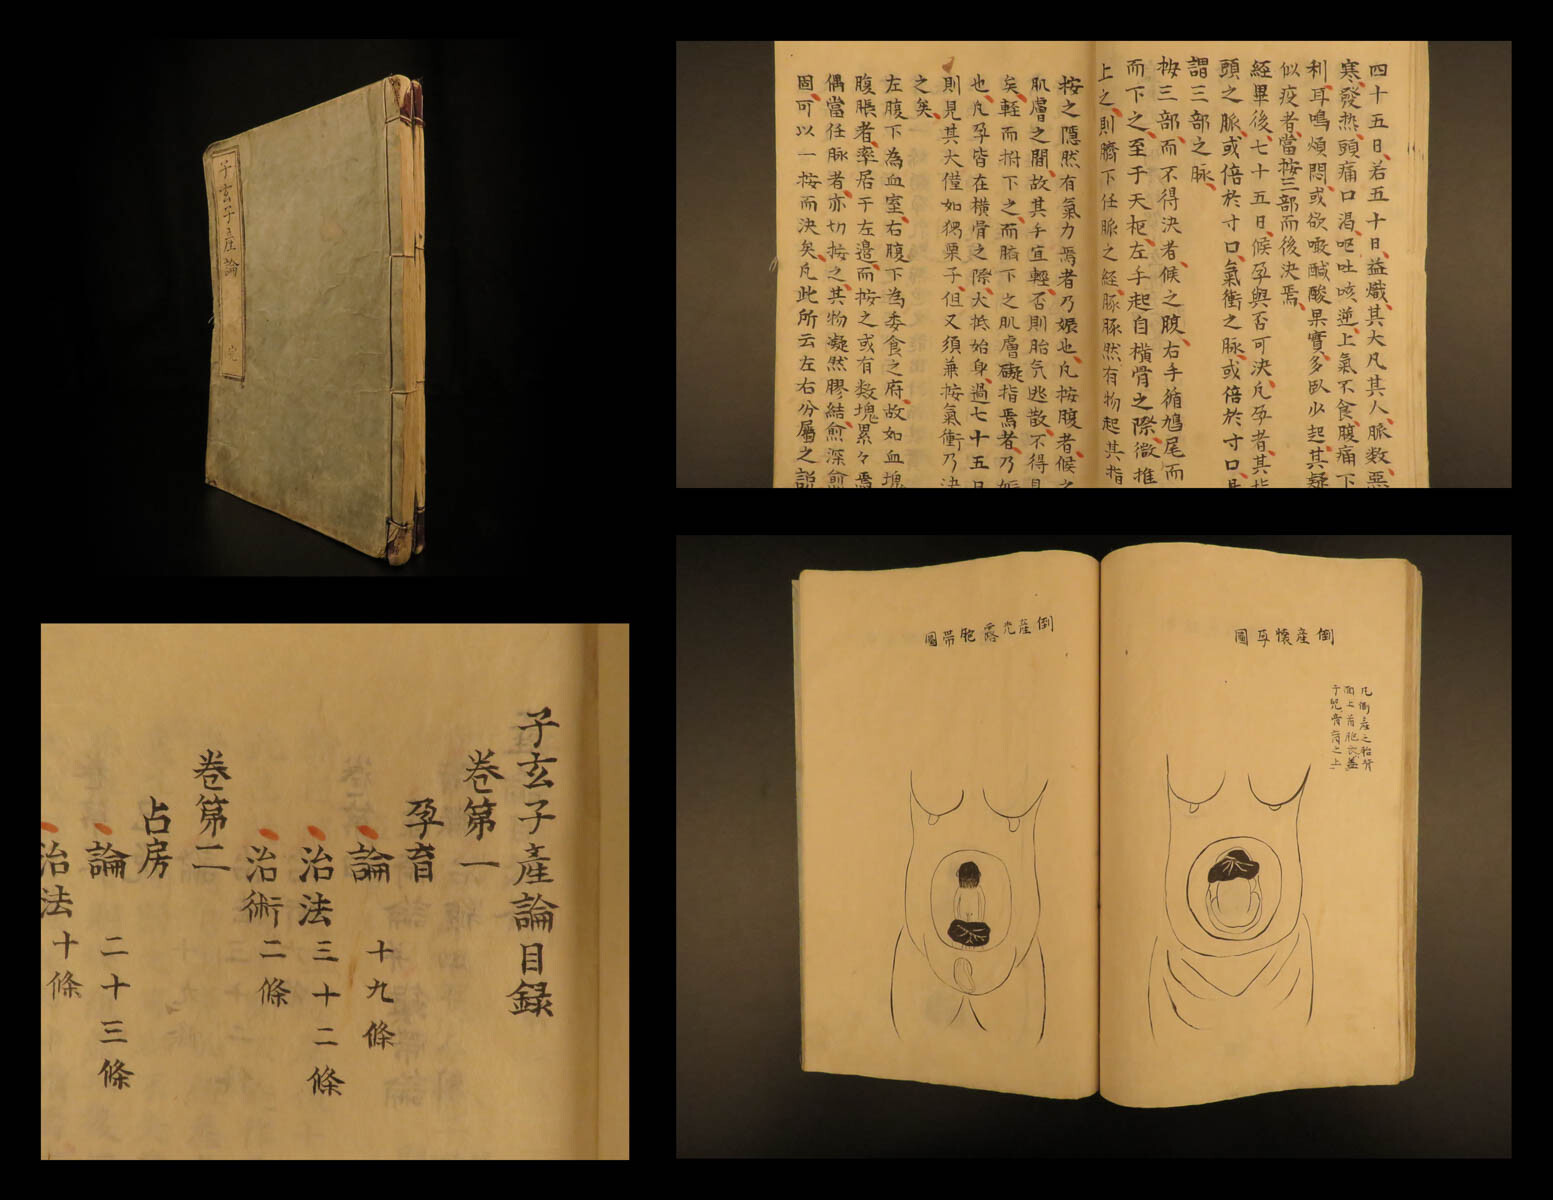 子玄子産論 完
四十五日若五十日益熾其大凡其人脈数惡
寒發热頭痛口渇呕吐咳逆上氣不食腹痛下
利耳鳴煩悶或欲噉醎酸果實多臥少起其疑
似疫者當按三部而後决焉
經畢後七十五日候孕與否可决凡孕者其指
頭之脈或倍於寸口氣衝之脈或倍於寸口是
謂三部之脈
按三部而不得决者候之腹右手循鳩尾而
而下之至于天枢左手起自横骨之際微推
上之則臍下任脈之經豚豚然有物起其指
按之隠然有氣力焉者乃娠也凡按腹者候之
肌膚之間故其手宜輕否則胎氕迯散不得見
矣輕而拊下之而臍下之肌膚礙指焉者乃娠
也凡孕皆在横骨之際大抵始身過七十五日
則見其大僅如獨栗子但又須兼按氣衝乃决
之矣
左腹下為血室右腹下為委食之府故如血塊
腹脹者率居于左邉而按之或有数塊累々焉
偶當任脉者亦切按之其物凝然膠結愈深愈
固可以一按而决矣凡此所云左右分屬之説
子玄子產論目録
巻第一
孕育
論 十九條
治法 三十二條
治術 二條
巻第二
占房
論 二十三條
治法 十條
倒産懐孕圖
凡倒産之胎臀
而上首胞衣蓋
于兒脊背之上
倒産先露胞帯圖